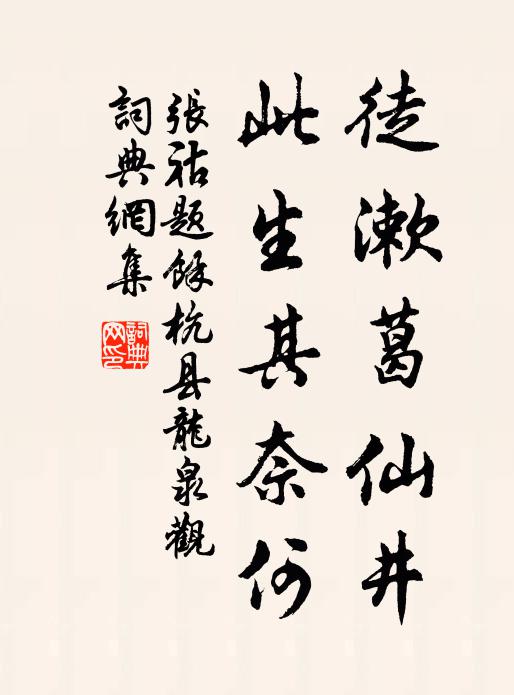 徒漱葛仙井
此生其奈何
張祜題餘杭县龍泉觀
詞典網集
詞典网印